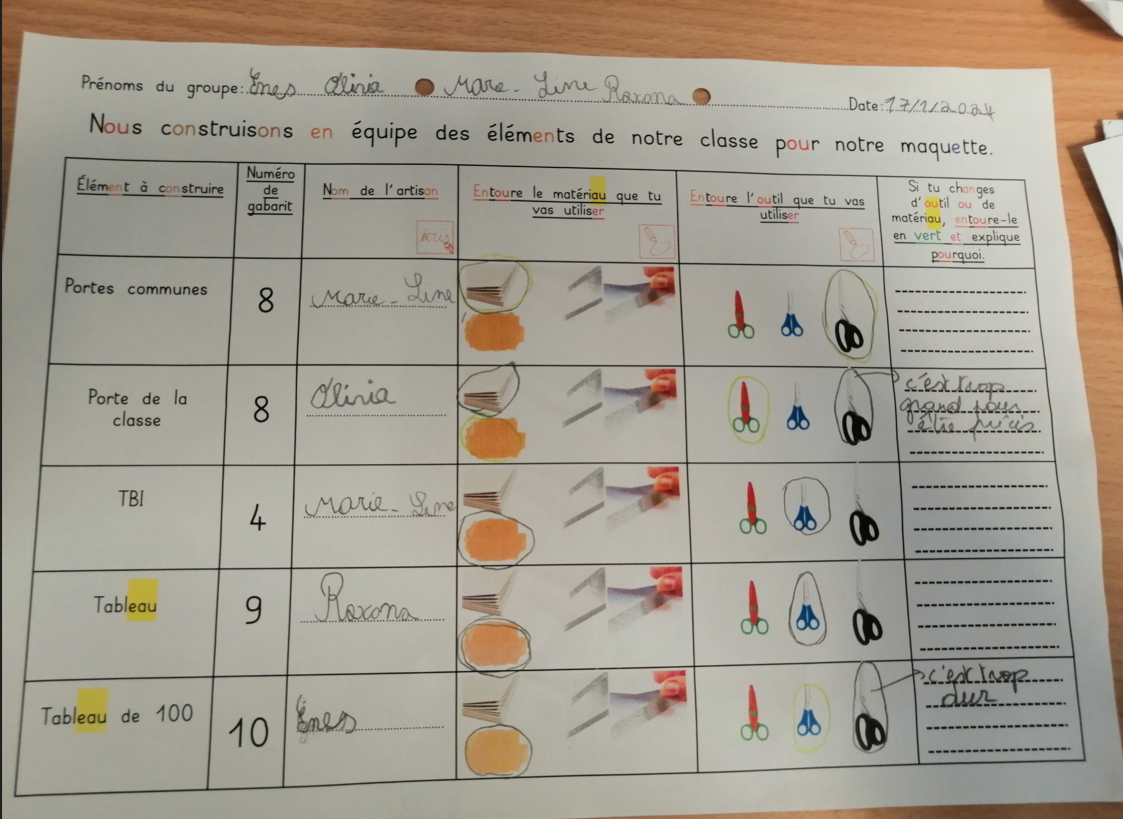 Prénoms du groupe: Enes Olivia Marie-Line Roxona
Date: 17/1/2024
Nous construisons en équipe des éléments de notre classe pour notre maquette.
Élément à construire
Numéro
de
gabarit
Nom de l'artisan
écris
Entoure le matériau que tu
vas utiliser
Entoure l'outil que tu vas
utiliser
Si tu changes
d'outil ou de
matériau, entoure-le
en vert et explique
pourquoi.
Portes communes
8
Marie-Line
Porte de la
classe
8
Olivia
c'est trop
grand pour
être précis
TBI
4
Marie-Line
Tableau
9
Roxona
Tableau de 100
10
Enes
c'est trop
dur